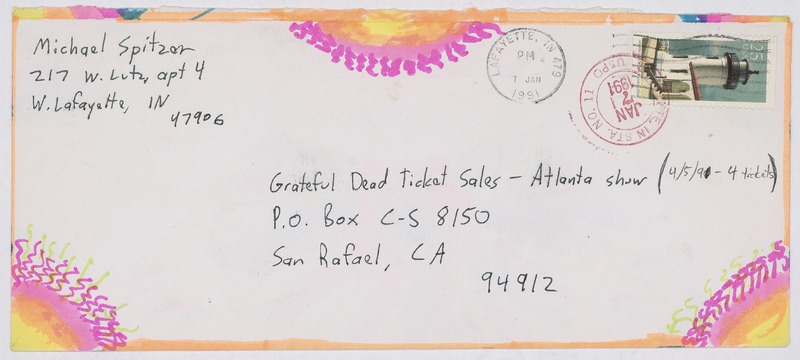 Michael Spitzer
217 W. Lutz, apt 4
W. Lafayette, IN
47906
LAFAYETTE, IN 479
PM
7 JAN
1991
25
USA
JAN
7
1991
IN STA. NO. 11
USPO
Grateful Dead Ticket Sales – Atlanta show (4/5/91 - 4 tickets)
P.O. Box C-S 8150
San Rafael, CA
94912